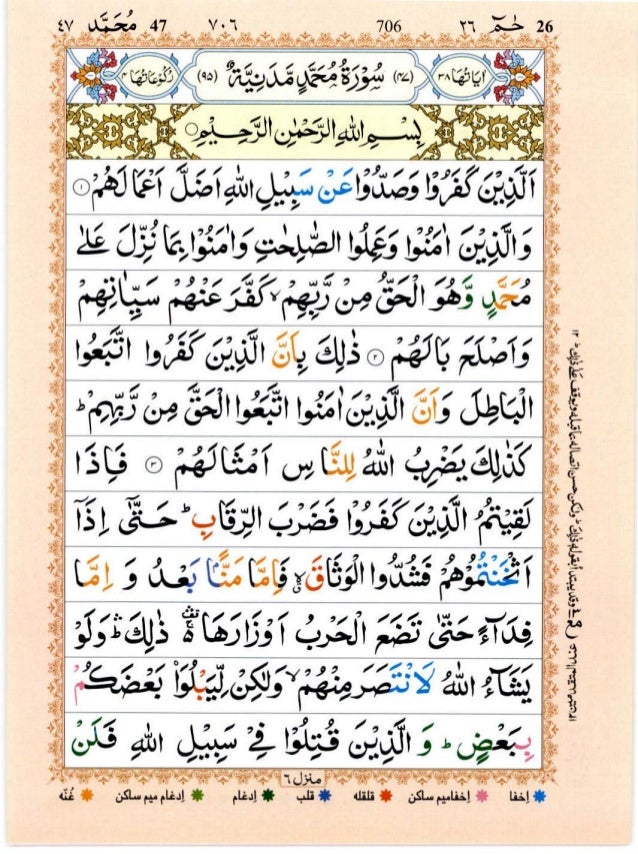 26 حٰمٓ ٢٦ 706 ٧٠٦ 47 مُحَمَّد ٤٧
اٰيَاتُهَا ٣٨ (٤٧) سُوْرَةُ مُحَمَّدٍ مَّدَنِيَّةٌ (٩٥) رُكُوْعَاتُهَا ٤
بِسْمِ اللهِ الرَّحْمٰنِ الرَّحِيْمِ
اَلَّذِيْنَ كَفَرُوْا وَصَدُّوْا عَنْ سَبِيْلِ اللهِ اَضَلَّ اَعْمَالَهُمْ ١
وَالَّذِيْنَ اٰمَنُوْا وَعَمِلُوا الصّٰلِحٰتِ وَاٰمَنُوْا بِمَا نُزِّلَ عَلٰى
مُحَمَّدٍ وَّهُوَ الْحَقُّ مِنْ رَّبِّهِمْ ۙ كَفَّرَ عَنْهُمْ سَيِّاٰتِهِمْ
وَاَصْلَحَ بَالَهُمْ ٢ ذٰلِكَ بِاَنَّ الَّذِيْنَ كَفَرُوا اتَّبَعُوا
الْبَاطِلَ وَاَنَّ الَّذِيْنَ اٰمَنُوا اتَّبَعُوا الْحَقَّ مِنْ رَّبِّهِمْ ؕ
كَذٰلِكَ يَضْرِبُ اللهُ لِلنَّاسِ اَمْثَالَهُمْ ٣ فَاِذَا
لَقِيْتُمُ الَّذِيْنَ كَفَرُوْا فَضَرْبَ الرِّقَابِ ؕ حَتّٰىٓ اِذَآ
اَثْخَنْتُمُوْهُمْ فَشُدُّوا الْوَثَاقَ ۙ فَاِمَّا مَنًّۢا بَعْدُ وَ اِمَّا
فِدَآءً حَتّٰى تَضَعَ الْحَرْبُ اَوْزَارَهَا ذٰلِكَ ؕ وَلَوْ
يَشَآءُ اللهُ لَانْتَصَرَ مِنْهُمْ ۙ وَلٰكِنْ لِّيَبْلُوَا۟ بَعْضَكُمْ
بِبَعْضٍ ؕ وَ الَّذِيْنَ قُتِلُوْا فِيْ سَبِيْلِ اللهِ فَلَنْ
منزل ٦
اِخفا اِخفامیم ساکن قلقله قلب اِدغام اِدغام میم ساکن غُنّه